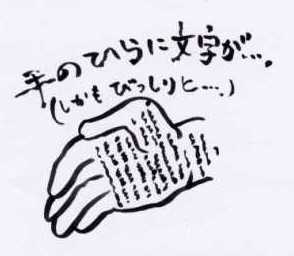 手のひらに文字が…。
(しかもびっしりと…。)